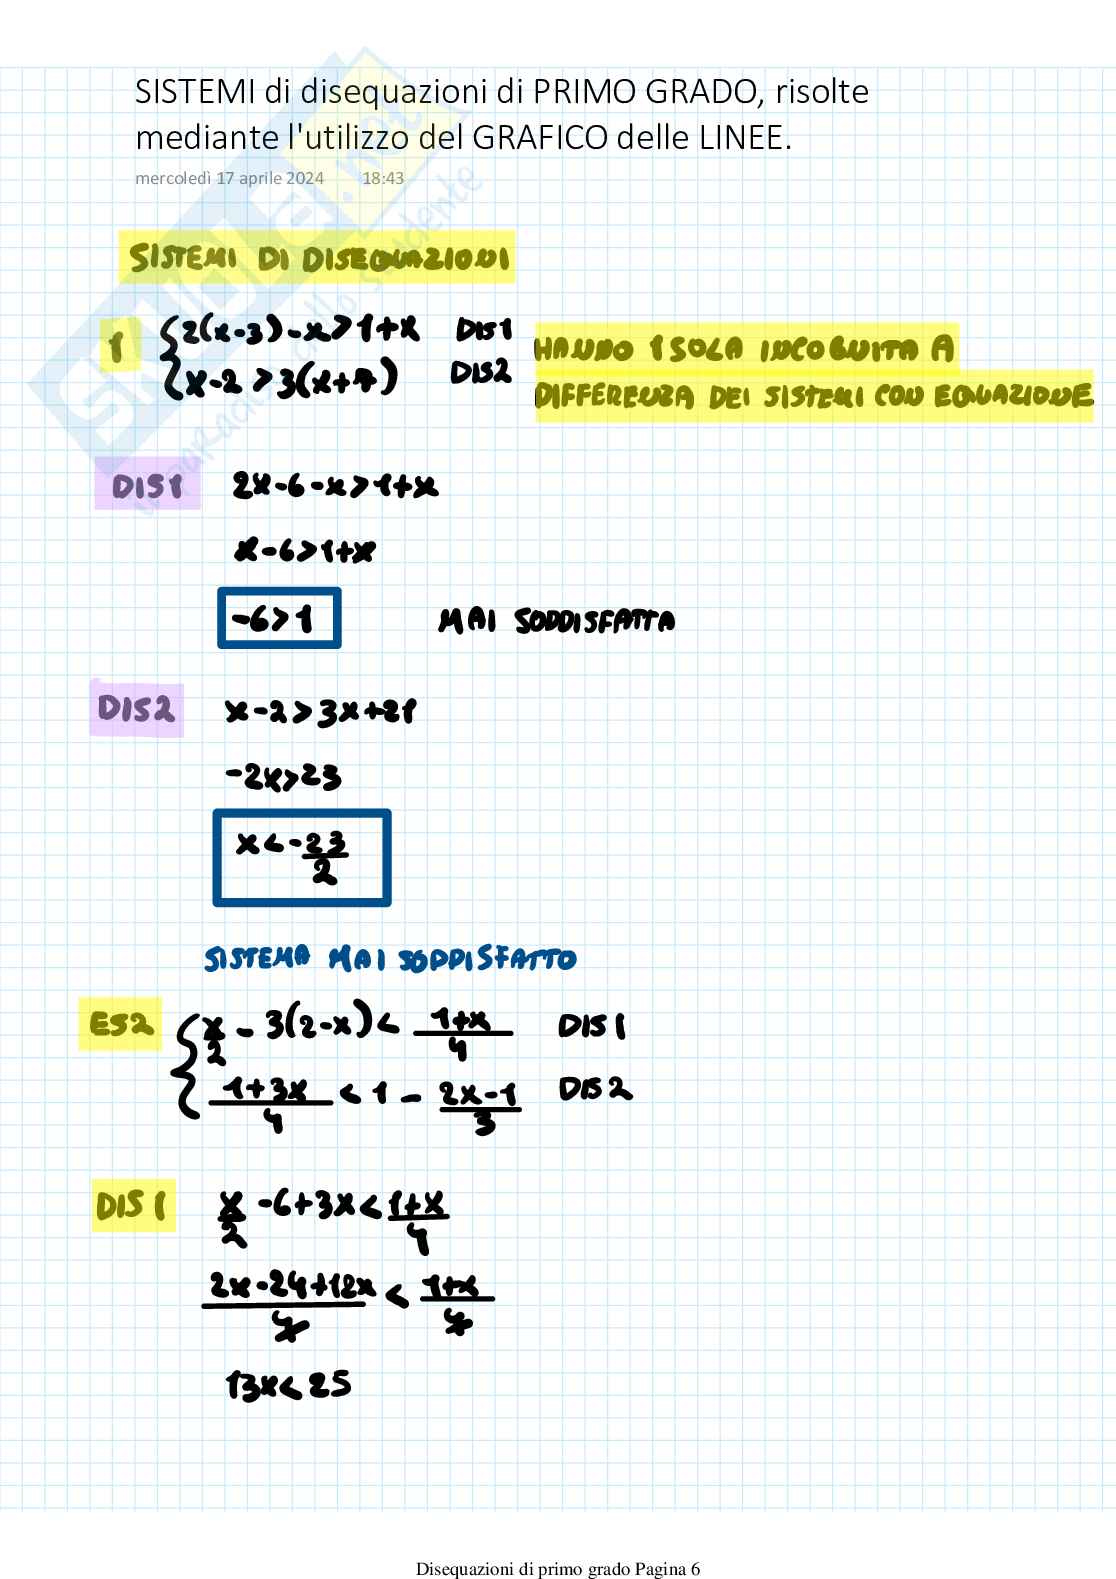 SISTEMI di disequazioni di PRIMO GRADO, risolte
mediante l'utilizzo del GRAFICO delle LINEE.
mercoledì 17 aprile 2024 18:43
SKUOLA.net
il paradiso dello studente
SISTEMI DI DISEQUAZIONI
1 { 2(x-3)-x>1+x DIS1
x-2>3(x+7) DIS2
HANNO 1 SOLA INCOGNITA A
DIFFERENZA DEI SISTEMI CON EQUAZIONE
DIS1 2x-6-x>1+x
x-6>1+x
-6>1 MAI SODDISFATTA
DIS2 x-2>3x+21
-2x>23
x<-23/2
SISTEMA MAI SODDISFATTO
ES2 { x/2 - 3(2-x) < (1+x)/4 DIS1
(1+3x)/4 < 1 - (2x-1)/3 DIS2
DIS1 x/2 -6+3x < (1+x)/4
(2x-24+12x)/4 < (1+x)/4
13x<25
Disequazioni di primo grado Pagina 6